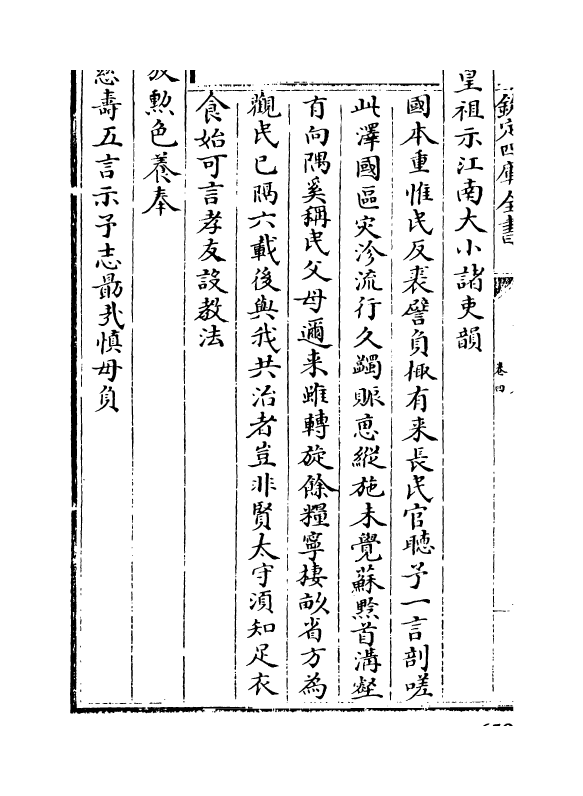 欽定四庫全書
卷四
皇祖示江南大小諸吏韻
國本重惟民反裘譬負掫有来長民官聽予一言剖嗟
此澤國區灾沴流行久蠲賑恵縱施未覺蘇黔首溝壑
育向隅奚稱民父母邇来雖轉旋餘糧寧棲畝省方為
觀民已隔六載後與我共治者豈非賢太守須知足衣
食始可言孝友設教法
放勲色養奉
慈壽五言示予志勗哉慎毋負